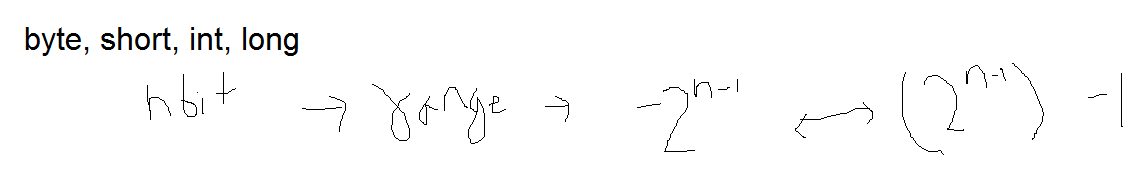 byte, short, int, long
nbit → range → -2^{n-1} ↔ (2^{n-1}) -1